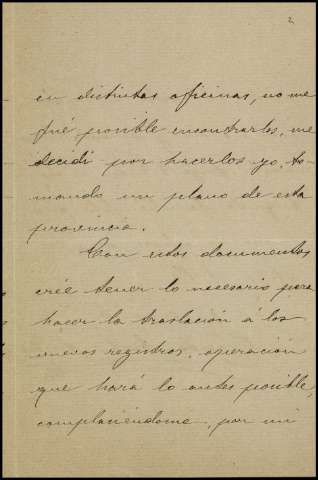 2
en distintas oficinas, no me
fué posible encontrarlos, me
decidí por hacerlos yo, to-
mando un plano de esta
provincia.
Con estos documentos
creé tener lo necesario para
hacer la traslación á los
nuevos registros, operación
que hará lo antes posible,
complaciéndome, por mi